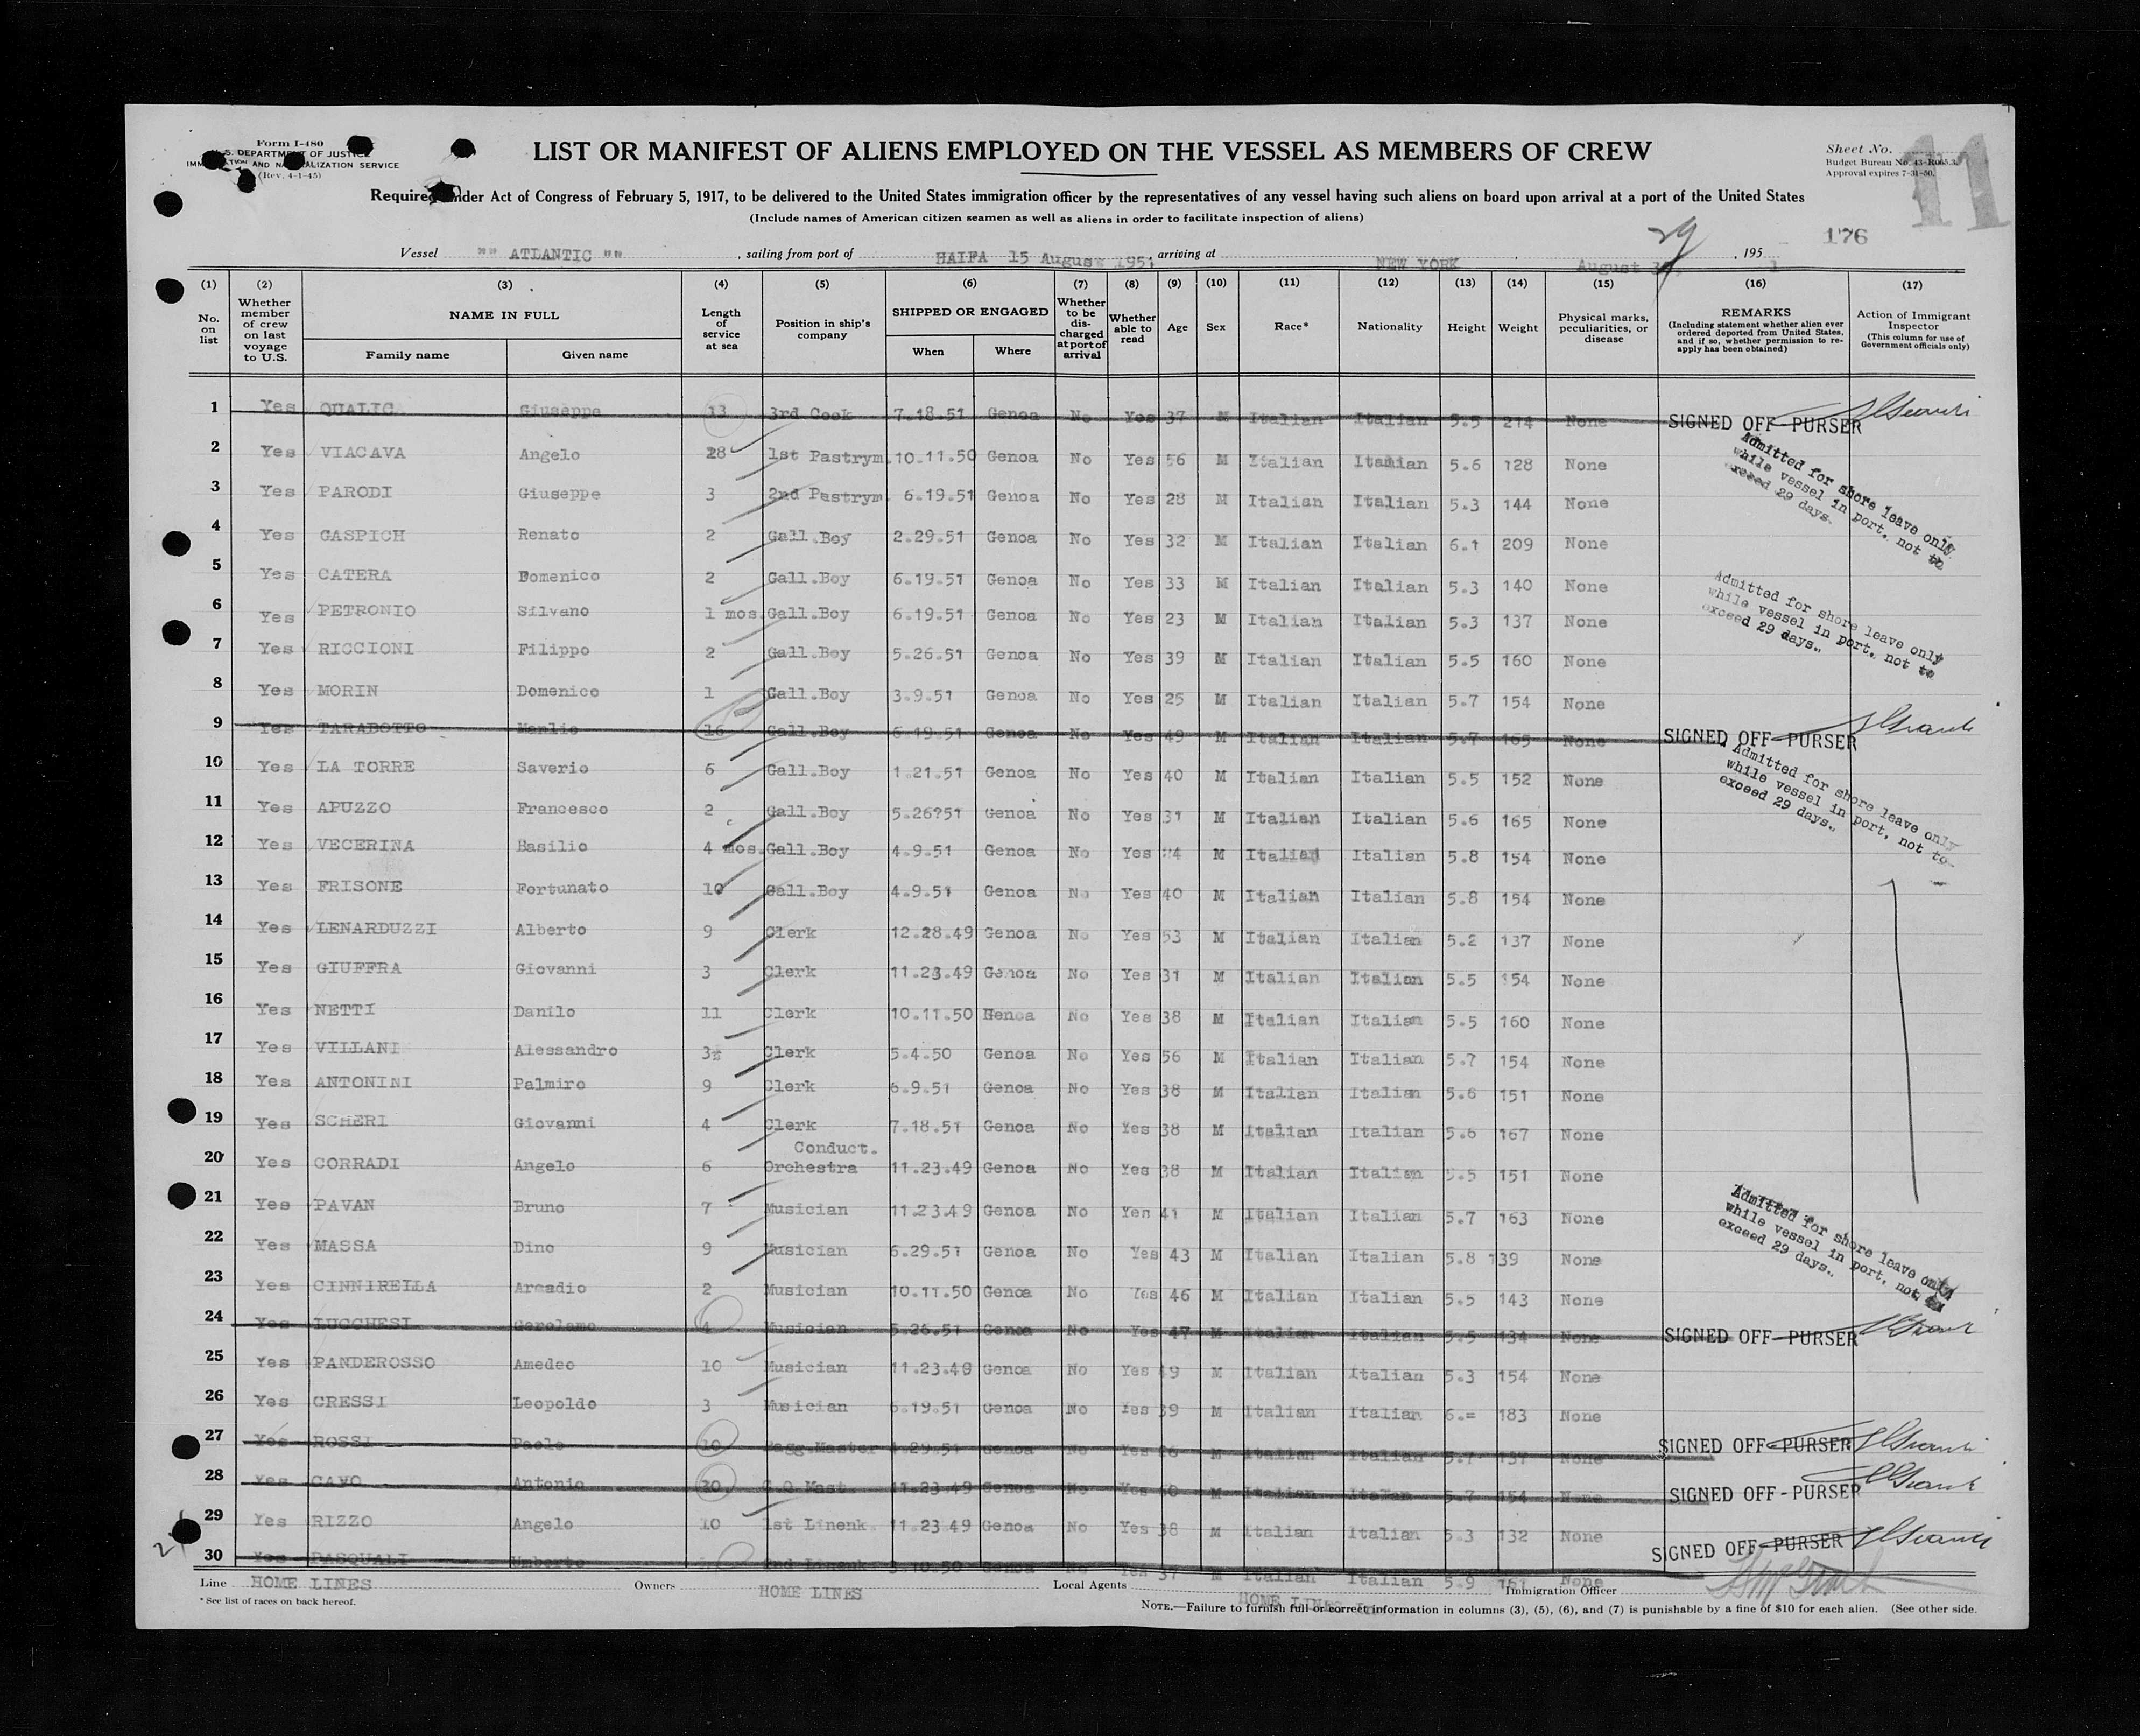 Form I-480
U.S. DEPARTMENT OF JUSTICE
IMMIGRATION AND NATURALIZATION SERVICE
(Rev. 4-1-45)
LIST OR MANIFEST OF ALIENS EMPLOYED ON THE VESSEL AS MEMBERS OF CREW
Sheet No. 11
Budget Bureau No. 43-R065.3.
Approval expires 7-31-50.
Required under Act of Congress of February 5, 1917, to be delivered to the United States immigration officer by the representatives of any vessel having such aliens on board upon arrival at a port of the United States
(Include names of American citizen seamen as well as aliens in order to facilitate inspection of aliens)
176
Vessel "" ATLANTIC "" , sailing from port of HAIFA 15 August 1951 arriving at NEW YORK , August 29 , 195 1
(1) (2) (3) (4) (5) (6) (7) (8) (9) (10) (11) (12) (13) (14) (15) (16) (17)
No. on list
Whether member of crew on last voyage to U.S.
NAME IN FULL
Family name Given name
Length of service at sea
Position in ship's company
SHIPPED OR ENGAGED
When Where
Whether to be discharged at port of arrival
Whether able to read
Age
Sex
Race*
Nationality
Height
Weight
Physical marks, peculiarities, or disease
REMARKS
(Including statement whether alien ever ordered deported from United States, and if so, whether permission to reapply has been obtained)
Action of Immigrant Inspector
(This column for use of Government officials only)
1 Yes QUALIC Giuseppe 13 3rd Cook 7.18.51 Genoa No Yes 37 M Italian Italian 5.5 214 None SIGNED OFF - PURSER
2 Yes VIACAVA Angelo 28 1st Pastrym. 10.11.50 Genoa No Yes 56 M Italian Italian 5.6 128 None
Admitted for shore leave only
while vessel in port, not to
exceed 29 days.
3 Yes PARODI Giuseppe 3 2nd Pastrym 6.19.51 Genoa No Yes 28 M Italian Italian 5.3 144 None
4 Yes GASPICH Renato 2 Gall.Boy 2.29.51 Genoa No Yes 32 M Italian Italian 6.1 209 None
5 Yes CATERA Domenico 2 Gall.Boy 6.19.51 Genoa No Yes 33 M Italian Italian 5.3 140 None
Admitted for shore leave only
while vessel in port, not to
exceed 29 days.
6 Yes PETRONIO Silvano 1 mos. Gall.Boy 6.19.51 Genoa No Yes 23 M Italian Italian 5.3 137 None
7 Yes RICCIONI Filippo 2 Gall.Boy 5.26.51 Genoa No Yes 39 M Italian Italian 5.5 160 None
8 Yes MORIN Domenico 1 Gall.Boy 3.9.51 Genoa No Yes 25 M Italian Italian 5.7 154 None
9 Yes TARABOTTO Manlio 16 Gall.Boy 6.19.51 Genoa No Yes 49 M Italian Italian 5.7 165 None SIGNED OFF - PURSER
10 Yes LA TORRE Saverio 6 Gall.Boy 1.21.51 Genoa No Yes 40 M Italian Italian 5.5 152 None
Admitted for shore leave only
while vessel in port, not to
exceed 29 days.
11 Yes APUZZO Francesco 2 Gall.Boy 5.26?51 Genoa No Yes 31 M Italian Italian 5.6 165 None
12 Yes VECERINA Basilio 4 mos. Gall.Boy 4.9.51 Genoa No Yes M Italian Italian 5.8 154 None
13 Yes FRISONE Fortunato 10 Gall.Boy 4.9.51 Genoa No Yes 40 M Italian Italian 5.8 154 None
14 Yes LENARDUZZI Alberto 9 Clerk 12.28.49 Genoa No Yes 53 M Italian Italian 5.2 137 None
15 Yes GIUFFRA Giovanni 3 Clerk 11.23.49 Genoa No Yes 31 M Italian Italian 5.5 154 None
16 Yes NETTI Danilo 11 Clerk 10.11.50 Henoa No Yes 38 M Italian Italian 5.5 160 None
17 Yes VILLANI Alessandro Clerk 5.4.50 Genoa No Yes 56 M Italian Italian 5.7 154 None
18 Yes ANTONINI Palmiro 9 Clerk 6.9.51 Genoa No Yes 38 M Italian Italian 5.6 151 None
19 Yes SCHERI Giovanni 4 Clerk 7.18.51 Genoa No Yes 38 M Italian Italian 5.6 167 None
20 Yes CORRADI Angelo 6 Conduct. Orchestra 11.23.49 Genoa No Yes 38 M Italian Italian 5.5 151 None
21 Yes PAVAN Bruno 7 Musician 11.23.49 Genoa No Yes 41 M Italian Italian 5.7 163 None
Admitted for shore leave only
while vessel in port, not to
exceed 29 days.
22 Yes MASSA Dino 9 Musician 6.29.51 Genoa No Yes 43 M Italian Italian 5.8 139 None
23 Yes CINNIRELLA Arcadio 2 Musician 10.11.50 Genoa No Yes 46 M Italian Italian 5.5 143 None
24 Yes LUCCHESI Gerolamo 4 Musician 5.26.51 Genoa No Yes 47 M Italian Italian 5.5 134 None SIGNED OFF - PURSER
25 Yes PANDEROSSO Amedeo 10 Musician 11.23.49 Genoa No Yes 49 M Italian Italian 5.3 154 None
26 Yes CRESSI Leopoldo 3 Musician 6.19.51 Genoa No Yes 39 M Italian Italian 6.= 183 None
27 Yes ROSSI Paolo 10 Bagg.Master 29.51 Genoa No Yes 26 M Italian Italian 5.7 137 None SIGNED OFF - PURSER
28 Yes CAVO Antonio Mast. 11.23.49 Genoa No Yes M Italian Italian 5.7 154 None SIGNED OFF - PURSER
29 Yes RIZZO Angelo 10 1st Linenk. 11.23 49 Genoa No Yes 38 M Italian Italian 5.3 132 None
30 Yes PASQUALI Umberto 2nd Linenk 3.10.50 Genoa No Yes 37 M Italian Italian 5.9 None SIGNED OFF - PURSER
Line HOME LINES Owners HOME LINES Local Agents HOME LINES Immigration Officer
*See list of races on back hereof.
NOTE.—Failure to furnish full or correct information in columns (3), (5), (6), and (7) is punishable by a fine of $10 for each alien. (See other side.